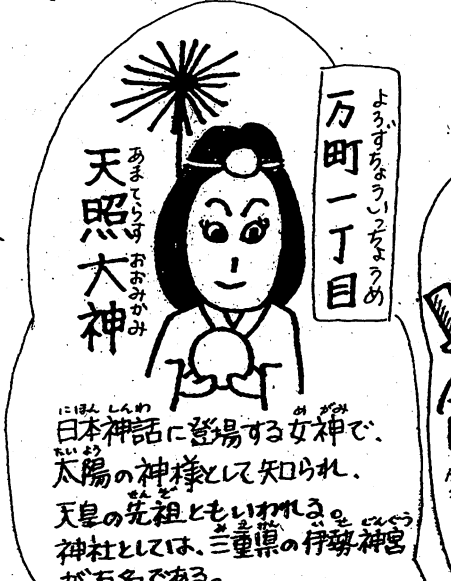 よろずちょういっちょうめ
万町一丁目
あまてらすおおみかみ
天照大神
にほんしんわ めがみ
日本神話に登場する女神で、
たいよう
太陽の神様として知られ、
せんぞ
天皇の先祖ともいわれる。
みえけん いせじんぐう
神社としては、三重県の伊勢神宮
が有名である。